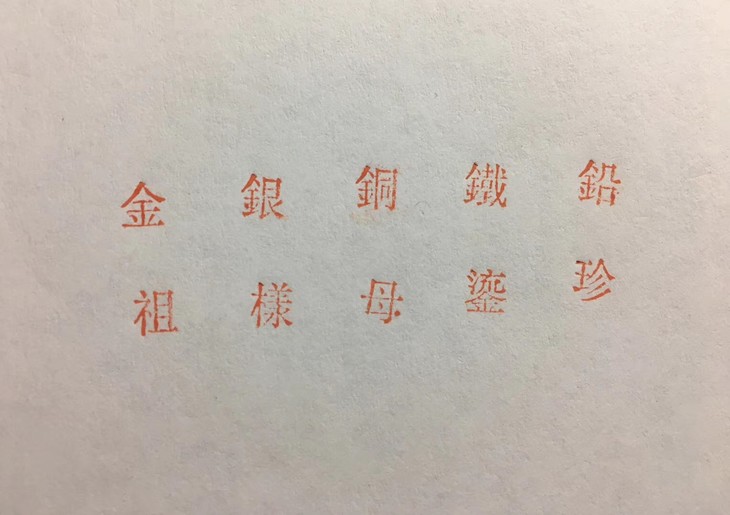 金銀銅鐵鉛
祖樣母鎏珍